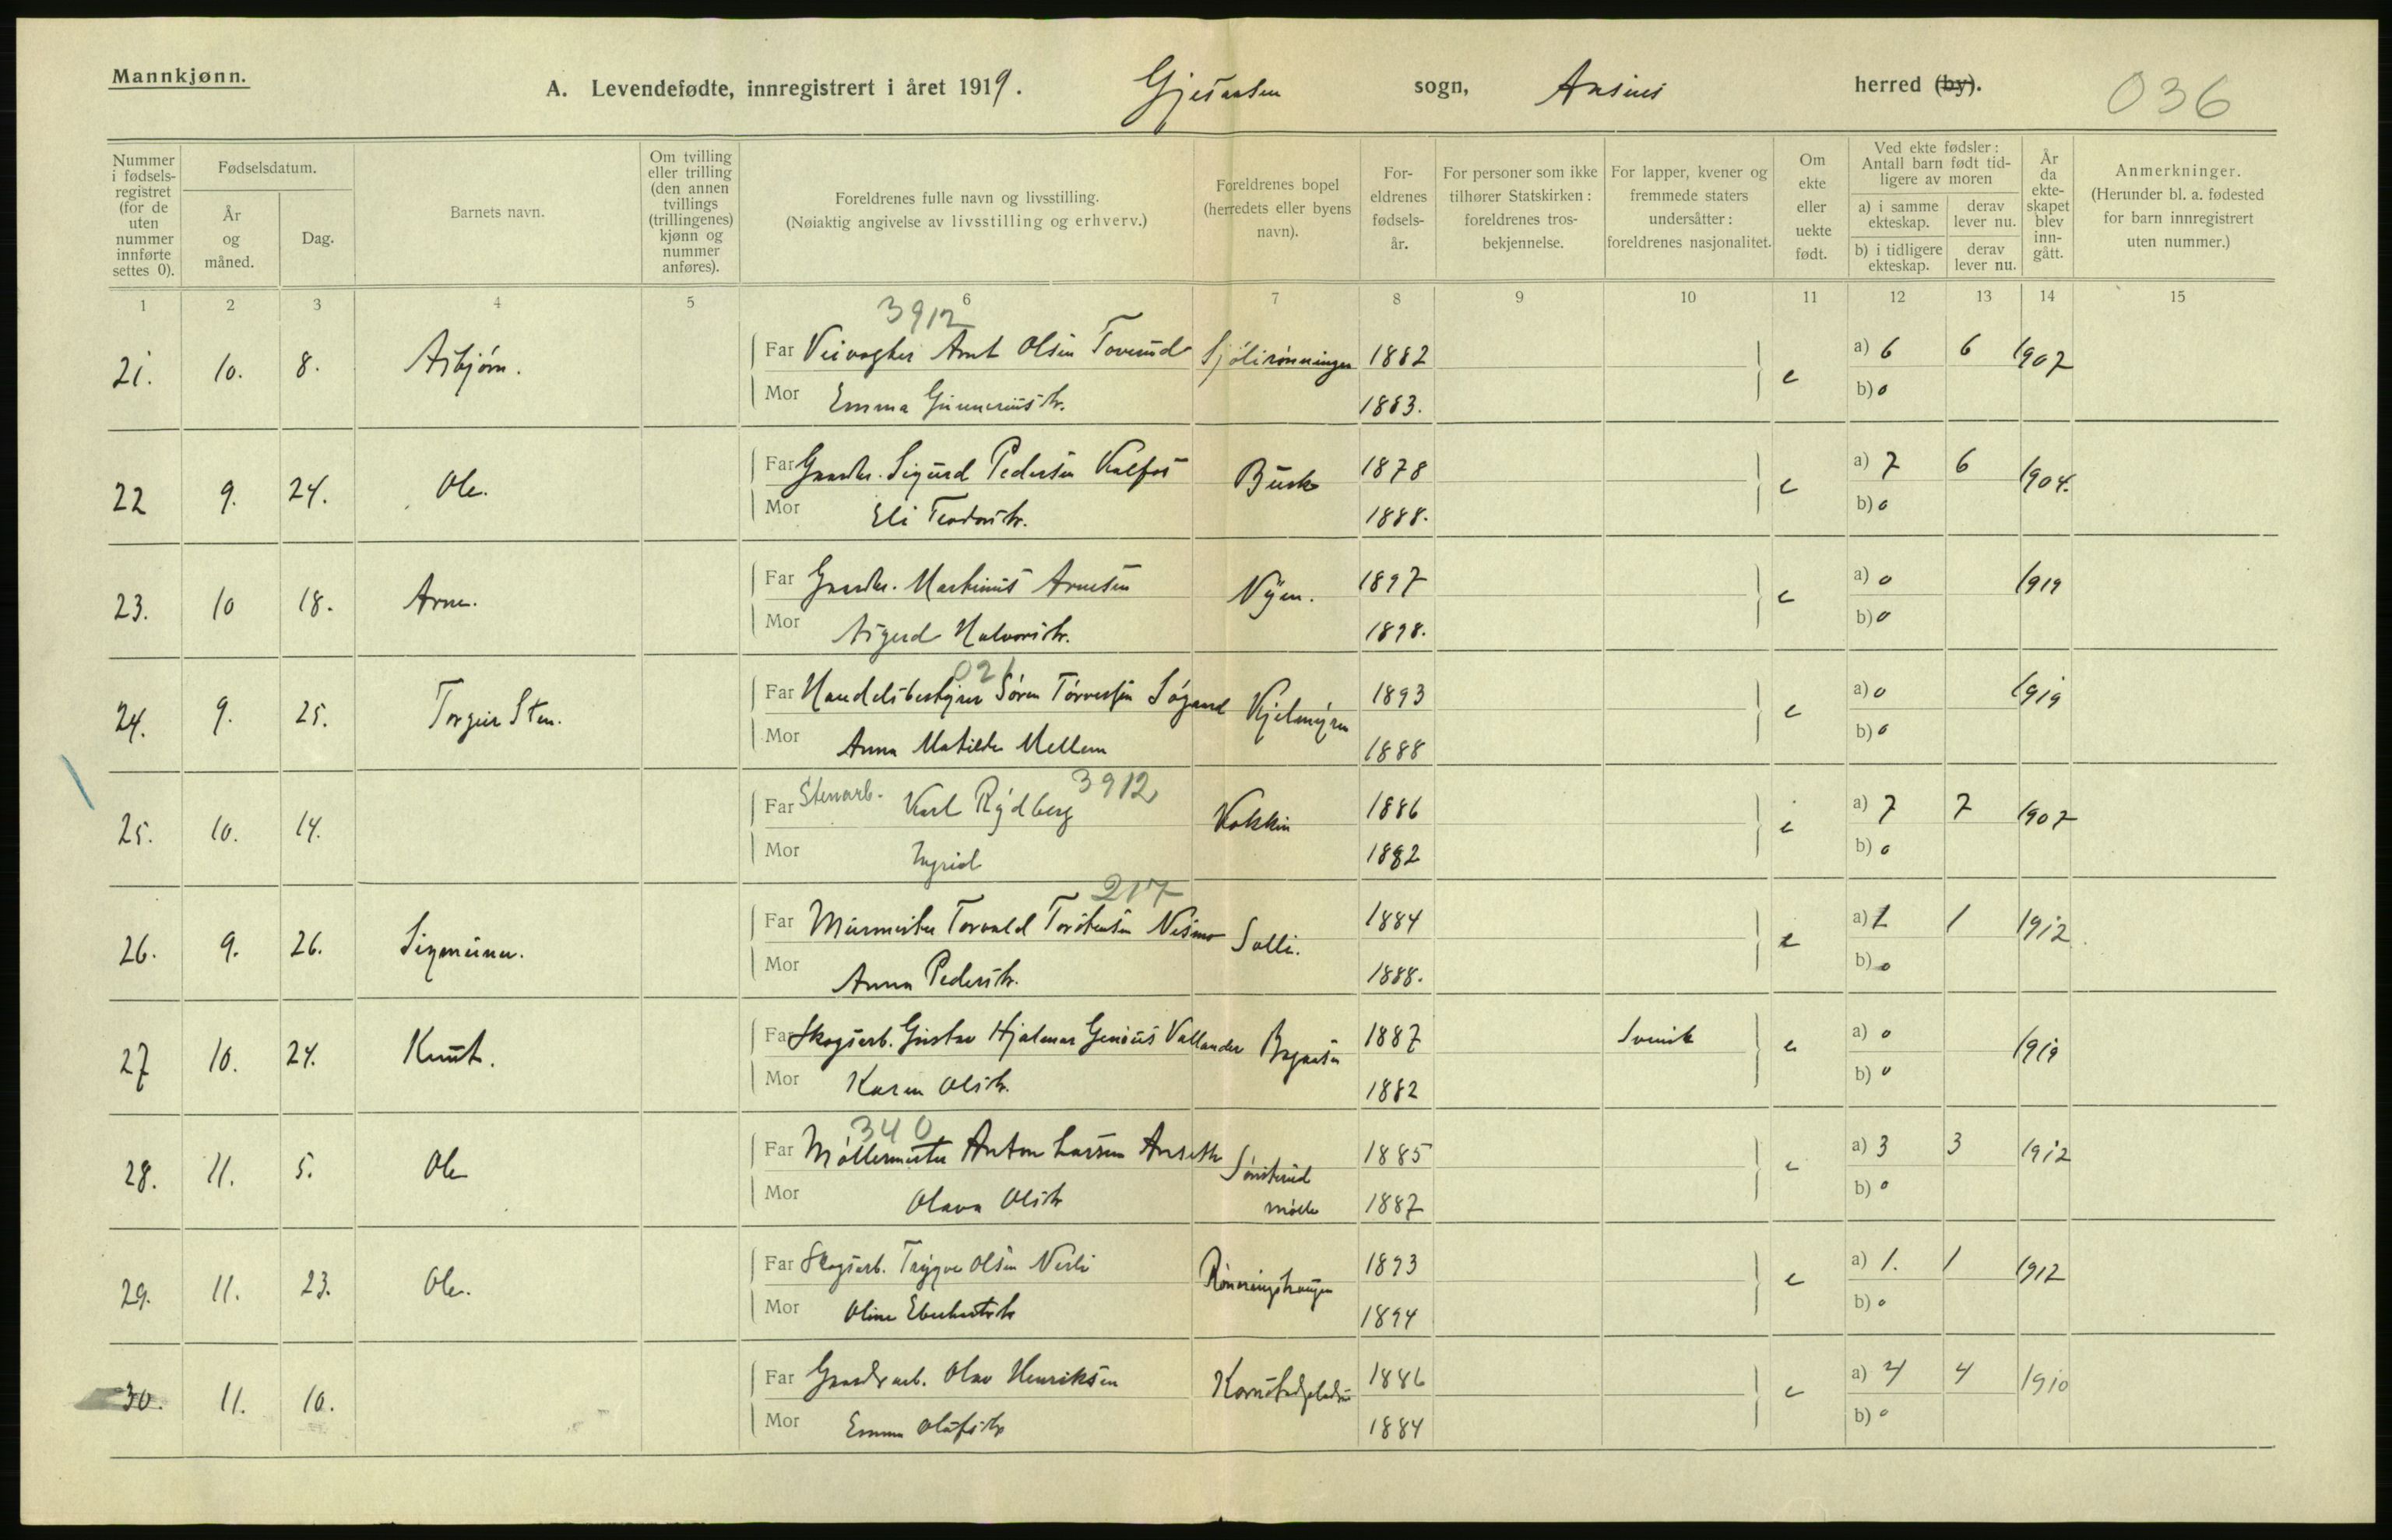 Mannkjønn.
A. Levendefødte, innregistrert i året 1919. Gjesaasen sogn, Aasnes herred (by). 036
Nummer i fødsels-registret (for de uten nummer innførte settes 0).
Fødselsdatum.
År og måned.
Dag.
Barnets navn.
Om tvilling eller trilling (den annen tvillings (trillingenes) kjønn og nummer anføres).
Foreldrenes fulle navn og livsstilling.
(Nøiaktig angivelse av livsstilling og erhverv.)
Foreldrenes bopel (herredets eller byens navn).
For-eldrenes fødsels-år.
For personer som ikke tilhører Statskirken: foreldrenes tros-bekjennelse.
For lapper, kvener og fremmede staters undersåtter: foreldrenes nasjonalitet.
Om ekte eller uekte født.
Ved ekte fødsler: Antall barn født tid-ligere av moren
a) i samme ekteskap.
derav lever nu.
b) i tidligere ekteskap.
derav lever nu.
År da ekte-skapet blev inn-gått.
Anmerkninger.
(Herunder bl. a. fødested for barn innregistrert uten nummer.)
1 2 3 4 5 6 7 8 9 10 11 12 13 14 15
3912
21. 10. 8. Asbjørn. Far Veivogter Arnt Olsen Toverud Sjølirønningen 1882 e a) 6 6 1907
Mor Emma Gunneriusdtr. 1883. b) 0
22 9. 24. Ole. Far Gaardbr. Sigurd Pedersen Kalfos Busk 1878 e a) 7 6 1904.
Mor Eli Teodorsdtr. 1888. b) 0
23. 10 18. Arne. Far Gaardbr. Martinius Arnesen Nyen. 1897 e a) 0 1919
Mor Aigerd Halvorsdtr. 1898. b) 0
021
24. 9. 25. Torgeir Sten. Far Handelsbestyrer Søren Tørresen Søgaard Kjelmyren 1893 e a) 0 1919
Mor Anna Matilde Mellem 1888 b) 0
3912
25. 10. 14. Far Stenarb. Karl Rydberg Kokkin 1886 e a) 7 7 1907
Mor Ingrid 1882 b) 0
217
26. 9. 26. Sigmund. Far Murmester Torvald Torstensen Nesmo Solli. 1884 e a) 1 1 1912
Mor Anna Pedersdtr. 1888. b) 0
27 10. 24. Knut. Far Skogsarb. Gustav Hjalmar Genius Vallander Bogaasen 1887 Svensk e a) 0 1919
Mor Karen Olsdtr. 1882 b) 0
340
28. 11. 5. Ole Far Møllermester Anton Larsen Anseth Sønsterud 1885 e a) 3 3 1912
Mor Olava Olsdtr mølle 1887 b) 0
29. 11. 23. Ole. Far Skogsarb. Trygve Olsen Nerli Rønningshaugen 1893 e a) 1. 1 1912
Mor Oline Eberhartsdtr 1894 b) 0
30. 11. 10. Far Gaardsarb. Olav Henriksen 1886 e a) 4 4 1910
Mor Emma Olufsdtr 1884 b) 0